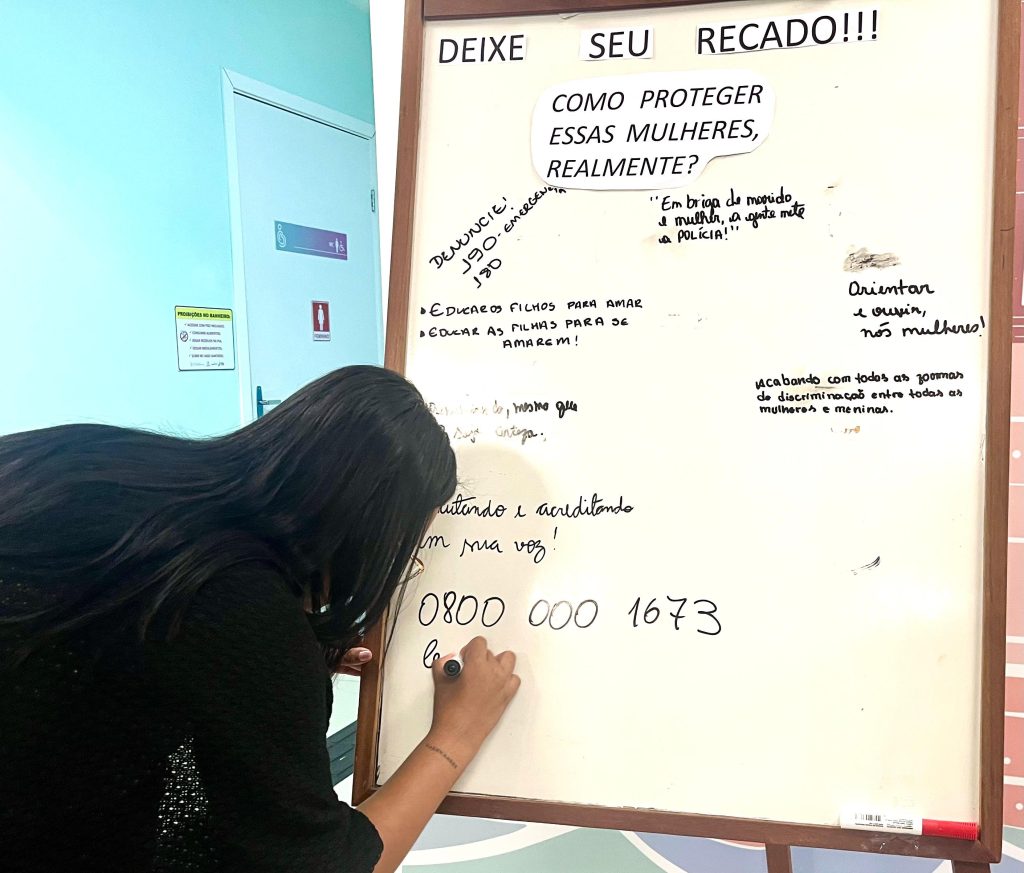 DEIXE SEU RECADO!!!
COMO PROTEGER
ESSAS MULHERES,
REALMENTE?
DENUNCIE!
190-EMERGÊNCIA
180
"Em briga de marido
e mulher, a gente mete
a POLÍCIA!"
Orientar
e ouvir,
nós mulheres!
• EDUCAR OS FILHOS PARA AMAR
• EDUCAR AS FILHAS PARA SE
AMAREM!
Acabando com todas as formas
de discriminação entre todas as
mulheres e meninas.
mesmo que
seja
e acreditando
sua voz!
0800 000 1673
PROIBIÇÕES NO BANHEIRO:
FEMININO